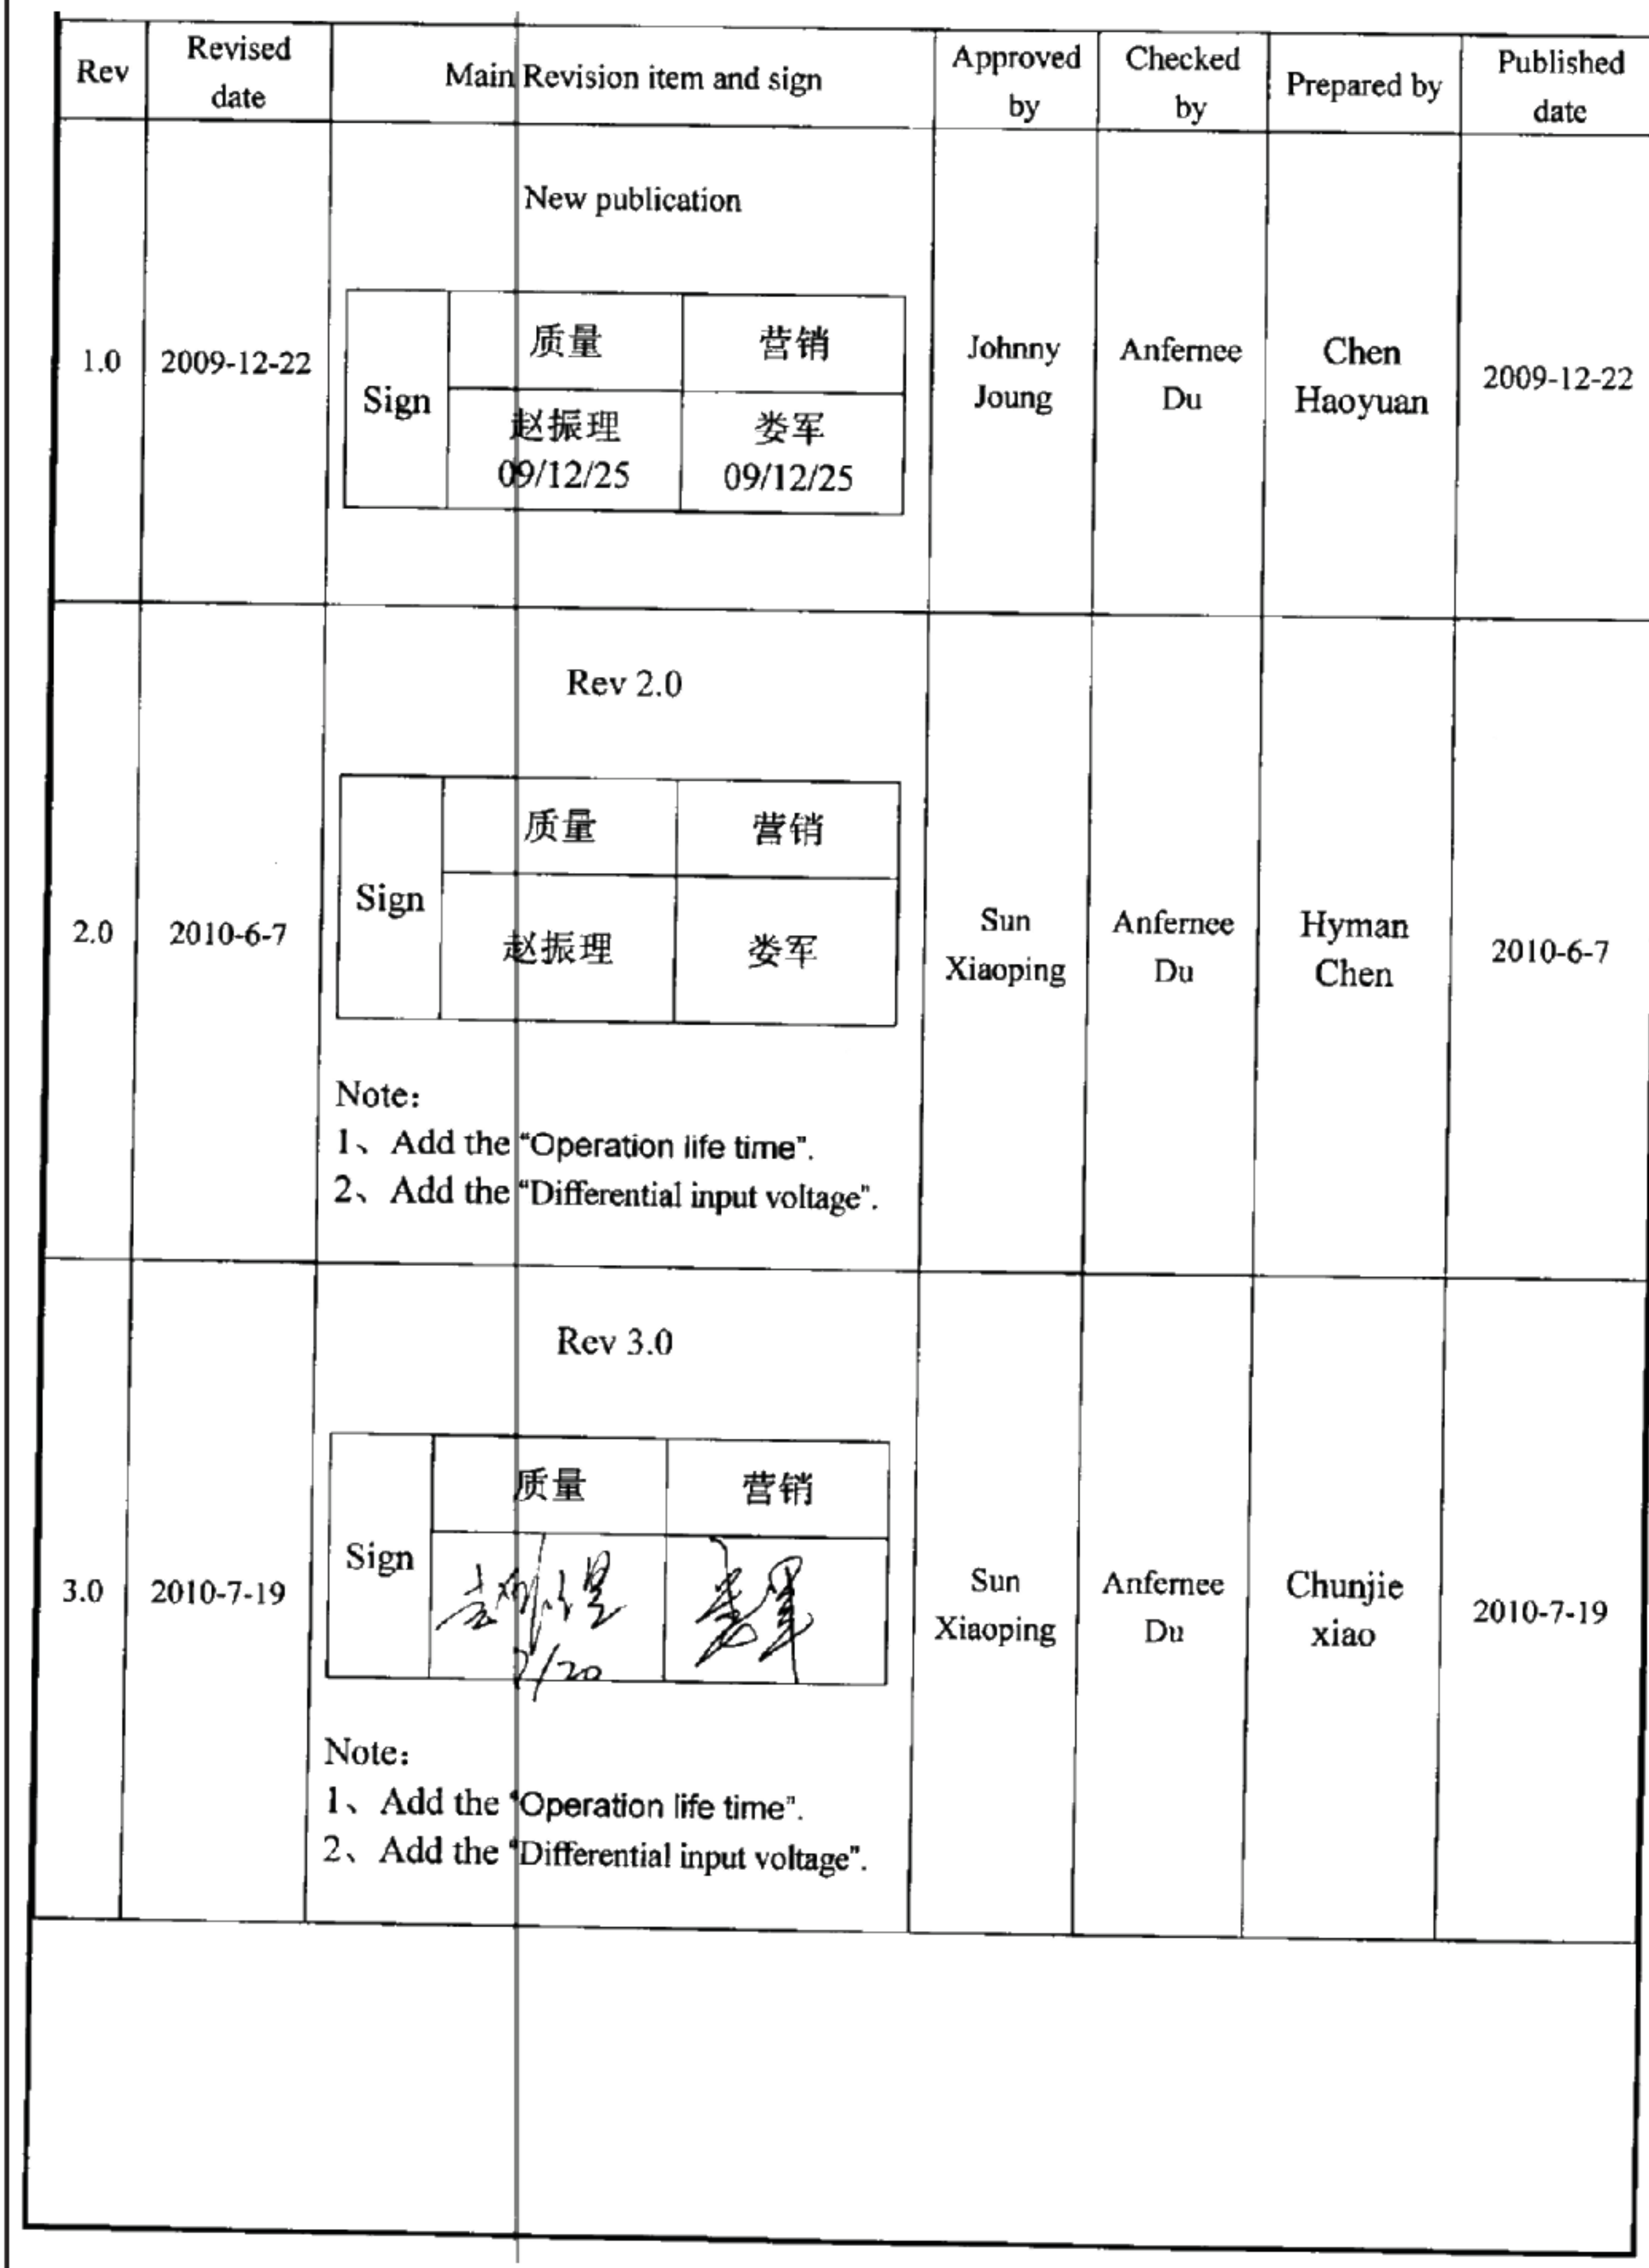 Rev
Revised
date
Main Revision item and sign
Approved
by
Checked
by
Prepared by
Published
date
1.0
2009-12-22
New publication
Sign
质量
营销
赵振理
09/12/25
娄军
09/12/25
Johnny
Joung
Anfernee
Du
Chen
Haoyuan
2009-12-22
2.0
2010-6-7
Rev 2.0
Sign
质量
营销
赵振理
娄军
Note:
1、Add the “Operation life time”.
2、Add the “Differential input voltage”.
Sun
Xiaoping
Anfernee
Du
Hyman
Chen
2010-6-7
3.0
2010-7-19
Rev 3.0
Sign
质量
营销
7/20
Note:
1、Add the “Operation life time”.
2、Add the “Differential input voltage”.
Sun
Xiaoping
Anfernee
Du
Chunjie
xiao
2010-7-19